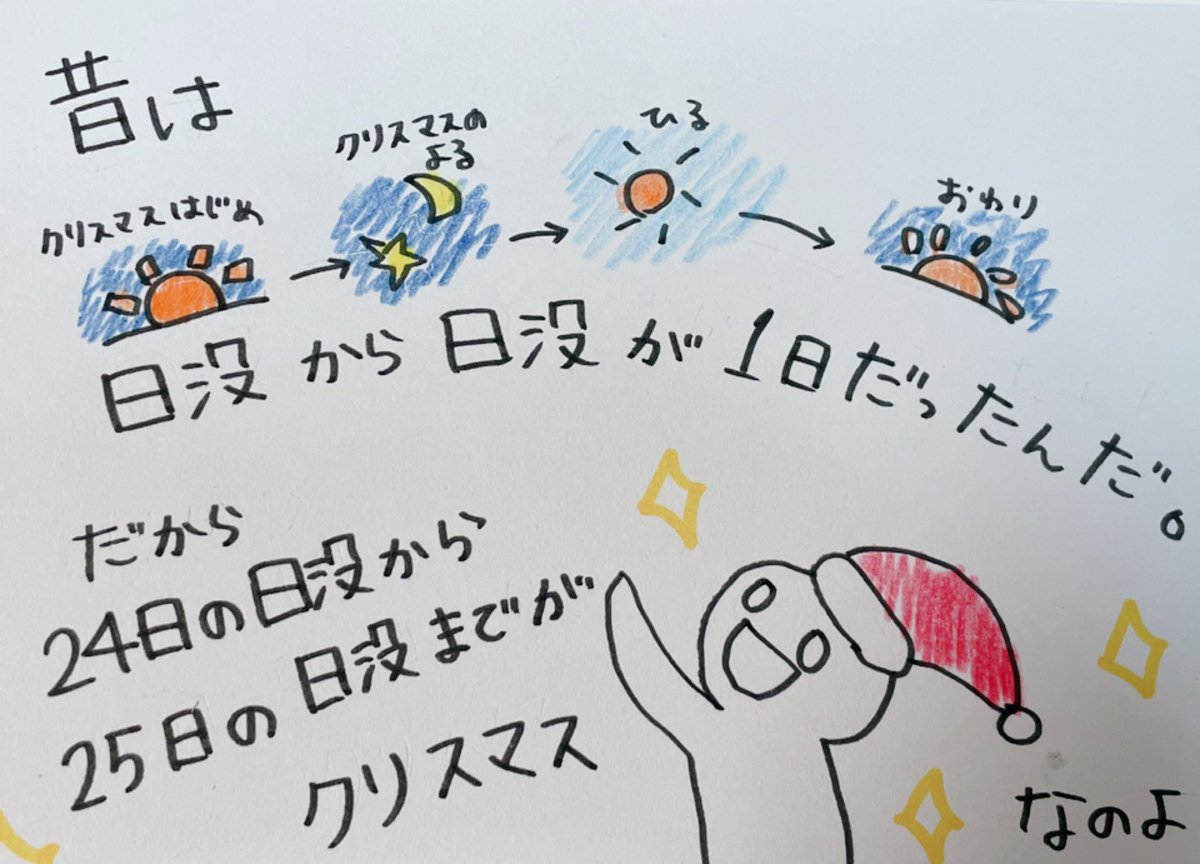 昔は
クリスマスはじめ
クリスマスの
よる
ひる
おわり
日没から日没が1日だったんだ。
だから
24日の日没から
25日の日没までが
クリスマス
なのよ